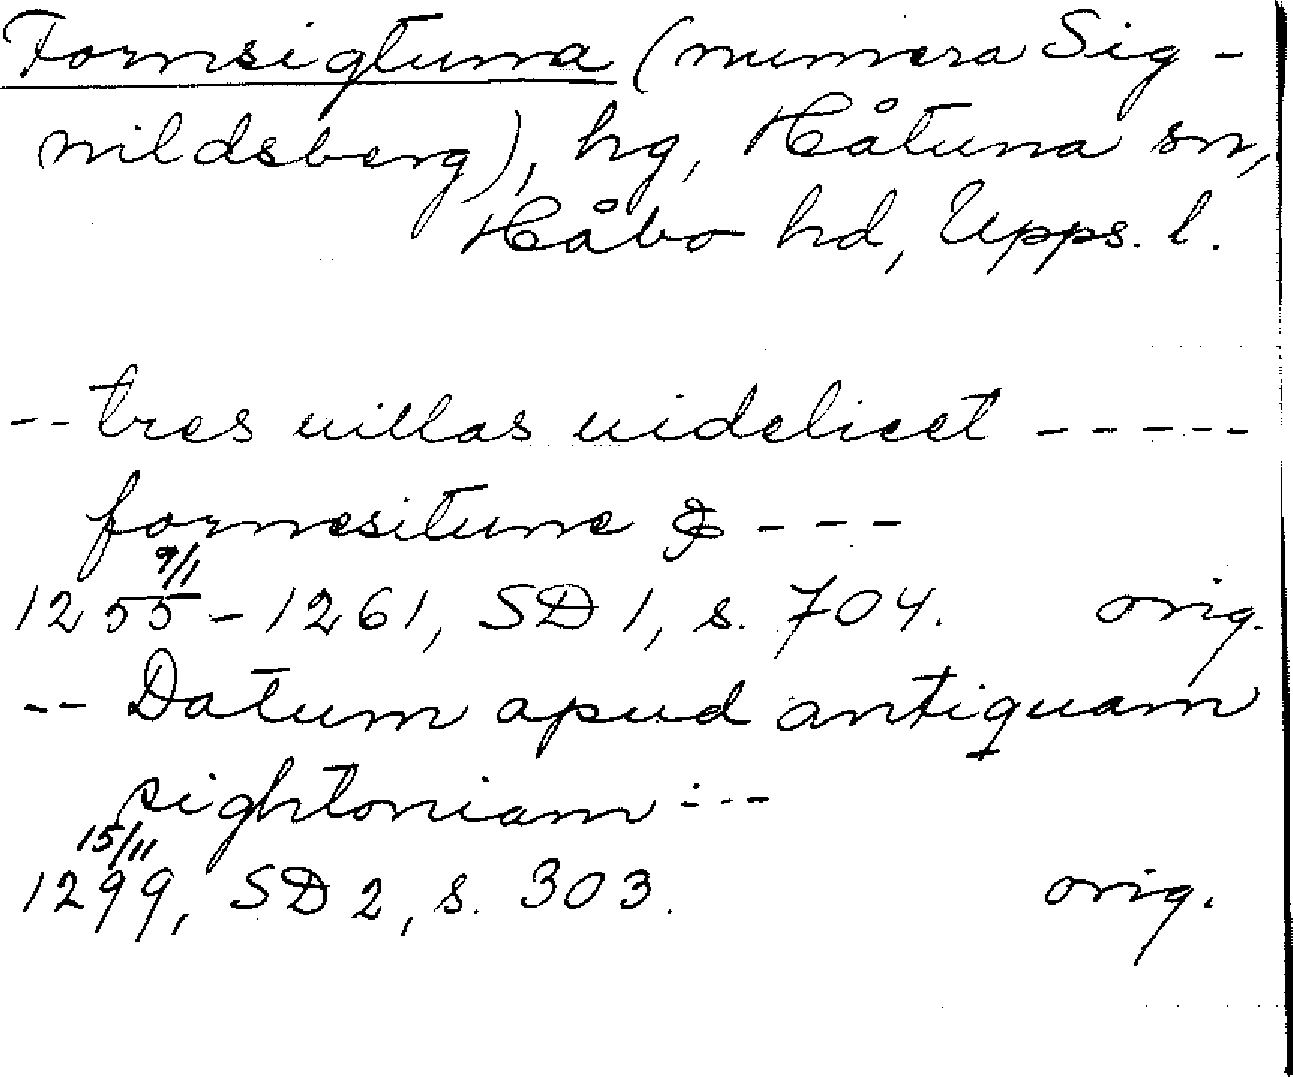 Fornsigtuna (numera Sig-
nildsberg), hg, Håtuna sn,
Håbo hd, Upps. l.
-- tres uillas uidelicet -----
fornesitune & ---
9/1
1255-1261, SD 1, s. 704. orig.
-- Datum apud antiquam
sightoniam ---
15/11
1299, SD 2, s. 303. orig.